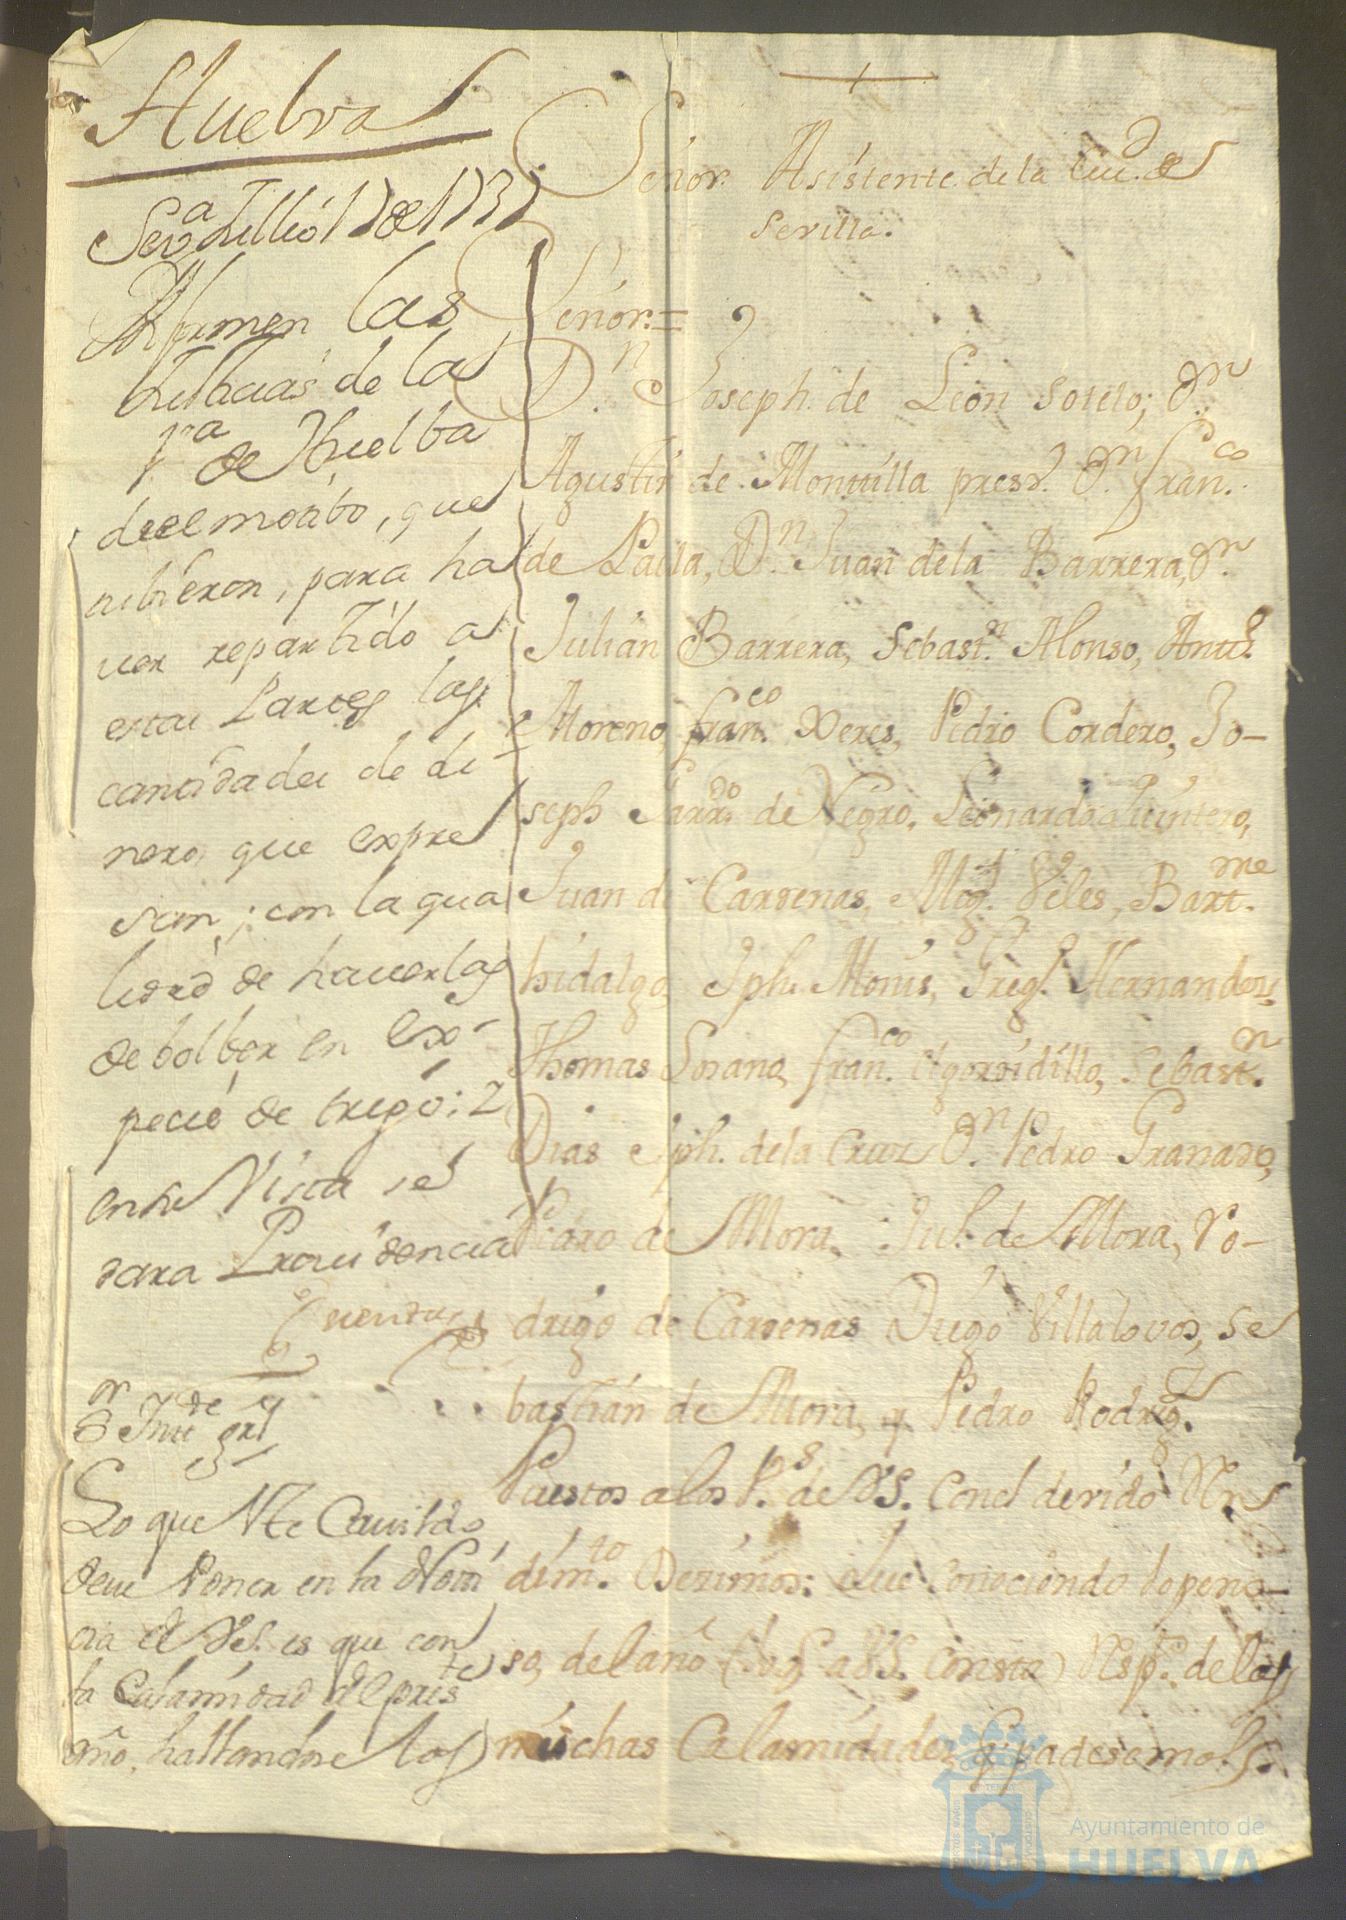 Huelva
Sev.ª Jullio 17 de 173
Afirmen las
Justicias de la
V.ª de Huelba
de el motibo, que
tubieron, para ha
ver repartido a
estas Partes las
cantidades de di-
nero, que expre
san; con la qua
lidad de haverlas
de bolber en ex-
pecie de trigo; i
en su Vista se
dara Providencia
S.or Int.de Gral
Lo que Ste Cavildo
deve Poner en la Noti
cia de V.S. es que con
la Calamidad del pres.te
año, hallandose los
Señor Asistente de la Ciu.d de
Sevilla.
Señor.=
D.n Joseph. de León Sotelo; D.n
Agustin de Montilla presv.º D.n Fran.co
de Paula, D.n Juan de la Barrera, D.n
Julián Barrera, Sebast.n Alonso, Antt.º
Moreno, fran.co Xeres, Pedro Cordero, Jo-
seph Garr.do de Negro, Leonardo Quintero,
Juan de Cardenas, Mig.l Veles, Bart.me
hidalgo, Jph. Monis, Greg.º Hernandez,
Thomas Sorano, fran.co Gordillo, Sebast.n
Dias Jph. de la Cruz D.n Pedro Granado,
Pedro de Mora, Jul.n de Mora, Ro-
drigo de Cardenas Diego Villalovos, Se
bastián de Mora, y Pedro Rodrig.z
Puestos a los P.s de V.S. con el devido Ren
dim.to Dezimos: Que Conociendo lo peno-
so, del año (Como a V.S. consta) Resp.to de las
muchas Calamidades q. padesemos.
Ayuntamiento de
HUELVA